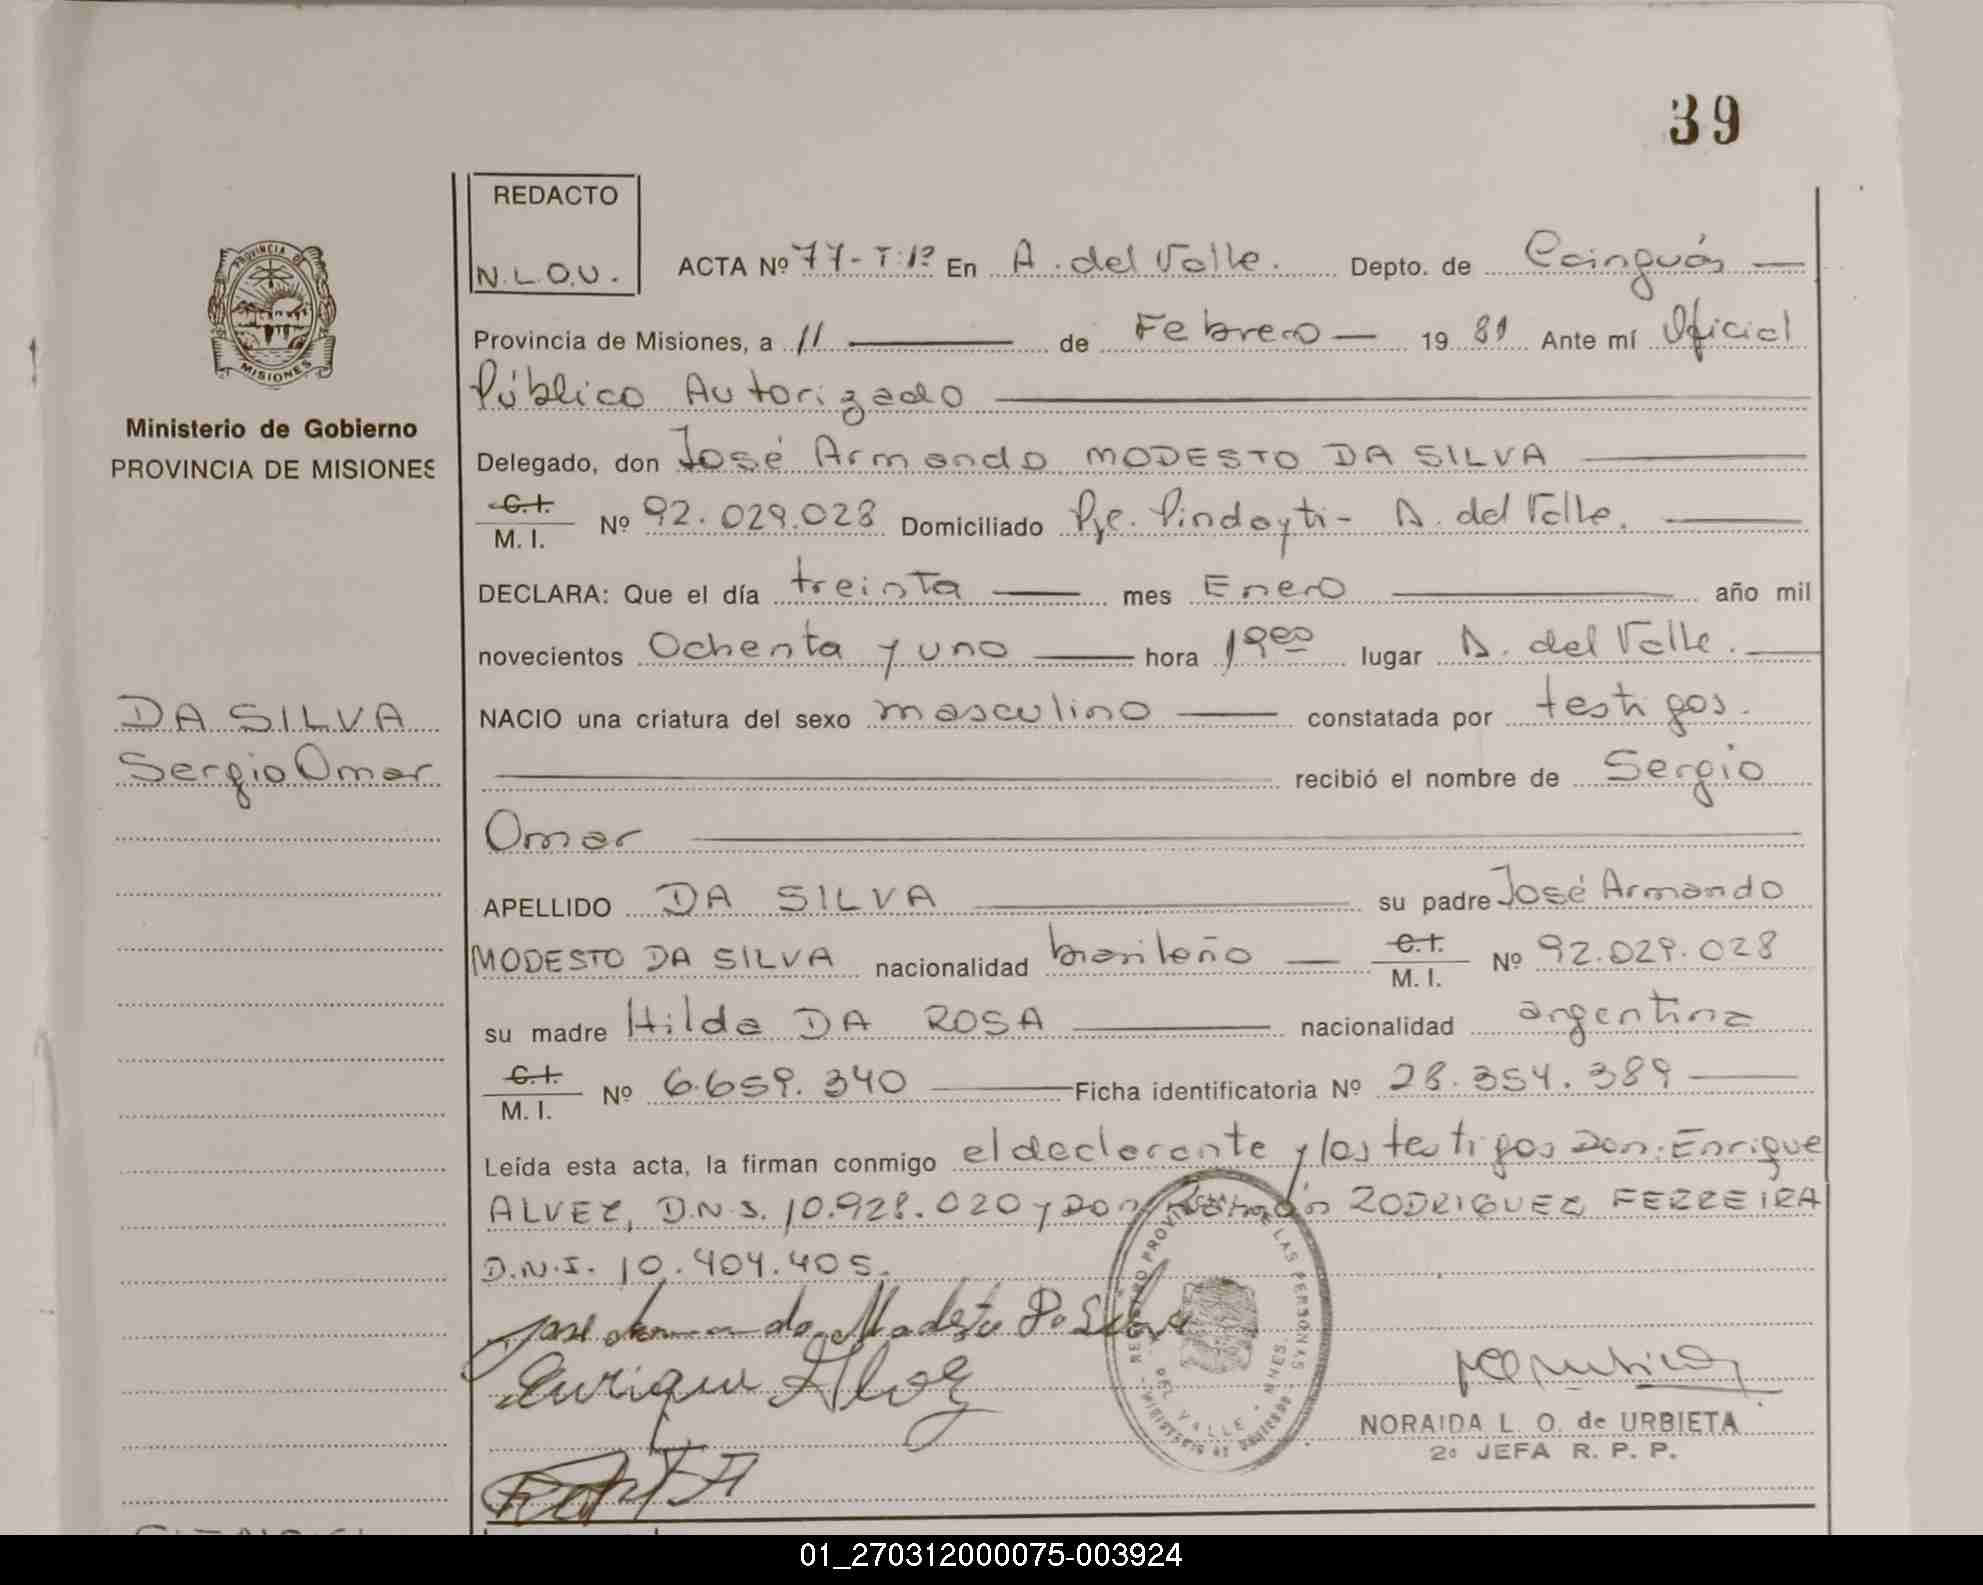 39
REDACTO
N.L.O.U.
ACTA Nº 77-T:1º En A. del Valle. Depto. de Cainguás
PROVINCIA DE
MISIONES
Provincia de Misiones, a 11 de Febrero 1981 Ante mí Oficial
Público Autorizado
Ministerio de Gobierno
PROVINCIA DE MISIONES
Delegado, don José Armando MODESTO DA SILVA
C.I.
M. I. Nº 92.029.028 Domiciliado Pje. Pindayti- A. del Valle.
DECLARA: Que el día treinta mes Enero año mil
novecientos Ochenta y uno hora 19:00 lugar A. del Valle.
DA SILVA
Sergio Omar
NACIO una criatura del sexo masculino constatada por testigos.
recibió el nombre de Sergio
Omar
APELLIDO DA SILVA su padre José Armando
MODESTO DA SILVA nacionalidad brasileño C.I. M. I. Nº 92.029.028
su madre Hilda DA ROSA nacionalidad argentina
C.I.
M. I. Nº 6.659.340 Ficha identificatoria Nº 28.354.389
Leída esta acta, la firman conmigo el declarante y los testigos Don: Enrique
ALVEZ, D.N.I. 10.928.020 y Don RODRIGUEZ FERREIRA
D.N.I. 10.404.405.
Jose Armando Modesto Da Silva
Enrique Alvez
REGISTRO PROVINCIAL DE LAS PERSONAS
DEL VALLE - MNES.
MINISTERIO DE GOBIERNO
NORAIDA L. O. de URBIETA
2º JEFA R. P. P.
01_270312000075-003924